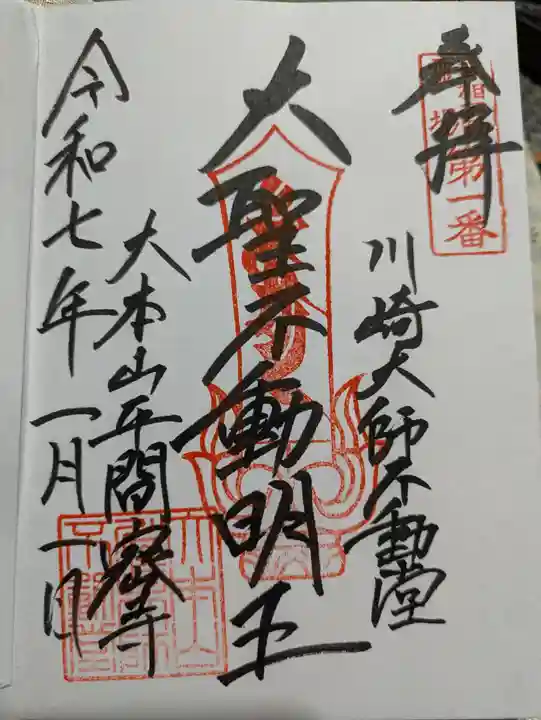 奉拝
第一番
川崎大師不動堂
大聖不動明王
大本山平間寺
令和七年一月一日